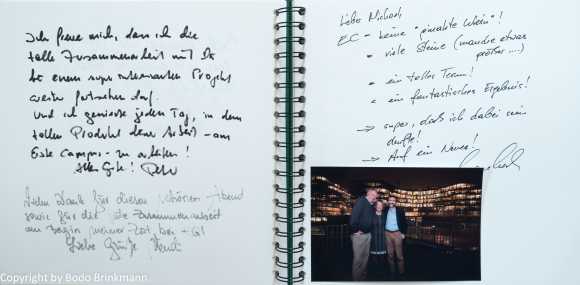 Ich freue mich, dass ich die
tolle Zusammenarbeit mit
einem super interessanten Projekt
weiter fortsetzen darf.
Und ich geniesse jeden Tag, in dem
tollen Produkt deiner Arbeit - am
Campus - zu arbeiten!
Alles Gute!
Vielen Dank für diesen schönen Abend
sowie für die gute Zusammenarbeit
am Beginn meiner Zeit bei
Liebe Grüße
Lieber Michael,
EC - keine "gmahte Wiesn"!
- viele Steine (manche etwas
größer....)
- ein tolles Team!
- ein fantastisches Ergebnis!
→ super, daß ich dabei sein
durfte!
→ Auf ein Neues!
Copyright by Bodo Brinkmann